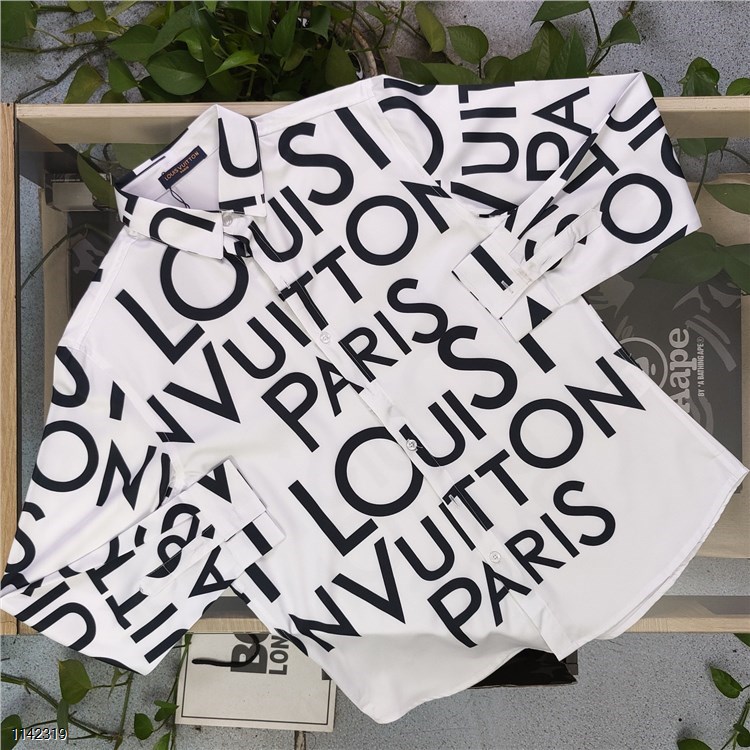 LOUIS
VUITTON
PARIS
LOUIS VUITTON
LOUIS
VUITTON
PARIS
Aape
BY *A BATHING APE®
LON
1142319